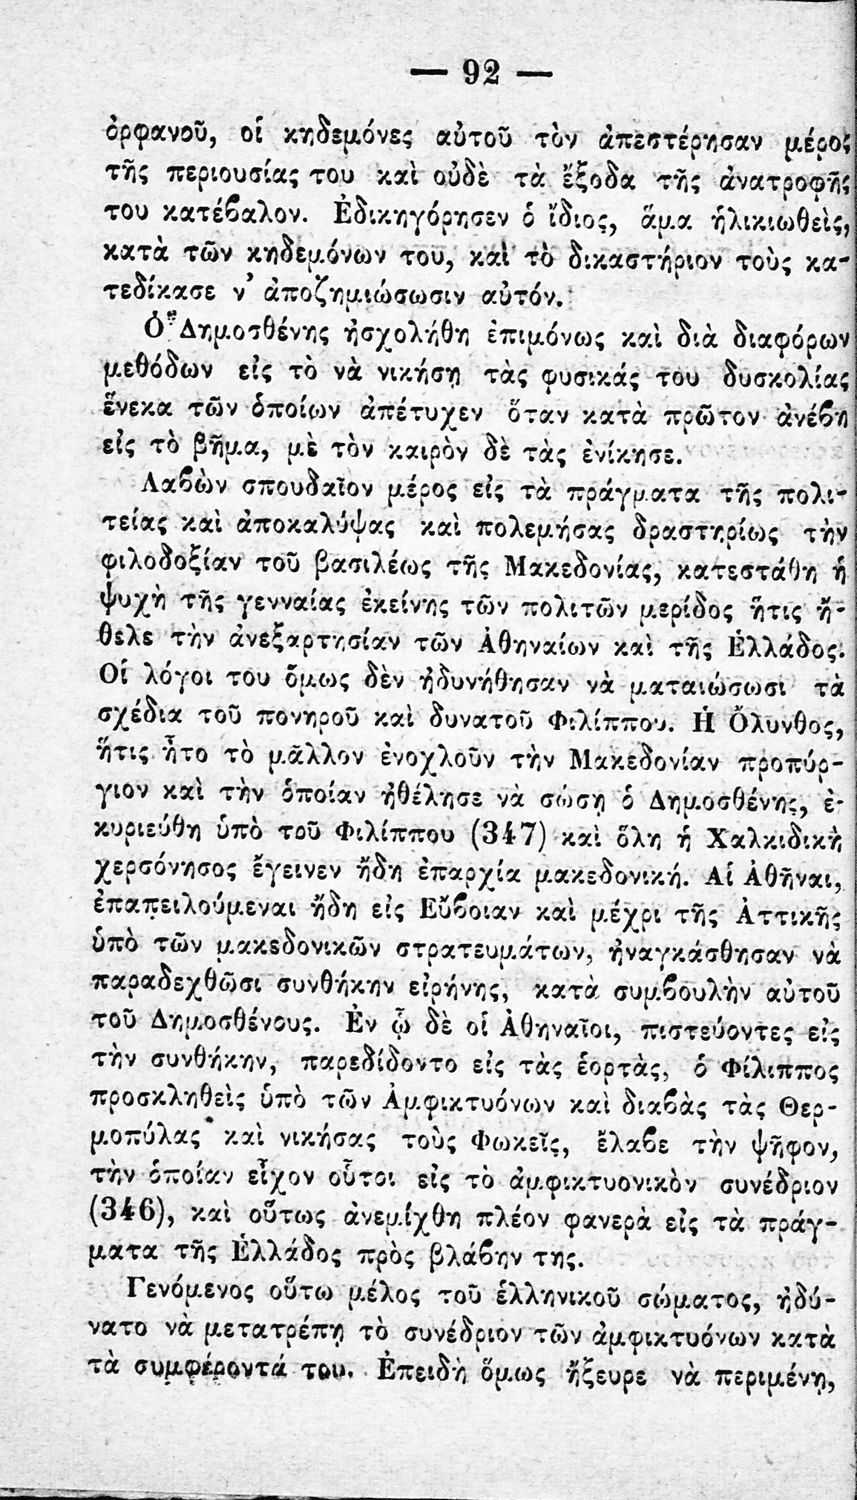 — 92 —
ὀρφανοῦ, οἱ κηδεμόνες αὐτοῦ τὸν ἀπεστέρησαν μέρος
τῆς περιουσίας του καὶ οὐδὲ τὰ ἔξοδα τῆς ἀνατροφῆς
του κατέβαλον. Ἐδικηγόρησεν ὁ ἴδιος, ἅμα ἡλικιωθεὶς,
κατὰ τῶν κηδεμόνων του, καὶ τὸ δικαστήριον τοὺς κα-
τεδίκασε ν' ἀποζημιώσωσιν αὐτόν.
Ὁ Δημοσθένης ἠσχολήθη ἐπιμόνως καὶ διὰ διαφόρων
μεθόδων εἰς τὸ νὰ νικήσῃ τὰς φυσικάς του δυσκολίας
ἕνεκα τῶν ὁποίων ἀπέτυχεν ὅταν κατὰ πρῶτον ἀνέβη
εἰς τὸ βῆμα, μὲ τὸν καιρὸν δὲ τὰς ἐνίκησε.
Λαβὼν σπουδαῖον μέρος εἰς τὰ πράγματα τῆς πολι-
τείας καὶ ἀποκαλύψας καὶ πολεμήσας δραστηρίως τὴν
φιλοδοξίαν τοῦ βασιλέως τῆς Μακεδονίας, κατεστάθη ἡ
ψυχὴ τῆς γενναίας ἐκείνης τῶν πολιτῶν μερίδος ἥτις ἤ-
θελε τὴν ἀνεξαρτησίαν τῶν Ἀθηναίων καὶ τῆς Ἑλλάδος.
Οἱ λόγοι του ὅμως δὲν ἠδυνήθησαν νὰ ματαιώσωσι τὰ
σχέδια τοῦ πονηροῦ καὶ δυνατοῦ Φιλίππου. Ἡ Ὄλυνθος,
ἥτις ἦτο τὸ μᾶλλον ἐνοχλοῦν τὴν Μακεδονίαν προπύρ-
γιον καὶ τὴν ὁποίαν ἠθέλησε νὰ σώσῃ ὁ Δημοσθένης, ἐ-
κυριεύθη ὑπὸ τοῦ Φιλίππου (347) καὶ ὅλη ἡ Χαλκιδικὴ
χερσόνησος ἔγεινεν ἤδη ἐπαρχία μακεδονική. Αἱ Ἀθῆναι,
ἐπαπειλούμεναι ἤδη εἰς Εὔβοιαν καὶ μέχρι τῆς Ἀττικῆς
ὑπὸ τῶν μακεδονικῶν στρατευμάτων, ἠναγκάσθησαν νὰ
παραδεχθῶσι συνθήκην εἰρήνης, κατὰ συμβουλὴν αὐτοῦ
τοῦ Δημοσθένους. Ἐν ᾧ δὲ οἱ Ἀθηναῖοι, πιστεύοντες εἰς
τὴν συνθήκην, παρεδίδοντο εἰς τὰς ἑορτὰς, ὁ Φίλιππος
προσκληθεὶς ὑπὸ τῶν Ἀμφικτυόνων καὶ διαβὰς τὰς Θερ-
μοπύλας καὶ νικήσας τοὺς Φωκεῖς, ἔλαβε τὴν ψῆφον,
τὴν ὁποίαν εἶχον οὗτοι εἰς τὸ ἀμφικτυονικὸν συνέδριον
(346), καὶ οὕτως ἀνεμίχθη πλέον φανερὰ εἰς τὰ πράγ-
ματα τῆς Ἑλλάδος πρὸς βλάβην της.
Γενόμενος οὕτω μέλος τοῦ ἑλληνικοῦ σώματος, ἠδύ-
νατο νὰ μετατρέπῃ τὸ συνέδριον τῶν ἀμφικτυόνων κατὰ
τὰ συμφέροντά του. Ἐπειδὴ ὅμως ἤξευρε νὰ περιμένῃ,